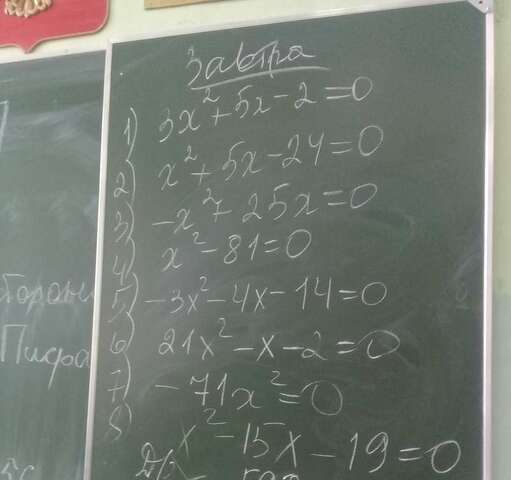 Завтра
1) 3x² + 5x - 2 = 0
2) x² + 5x - 24 = 0
3) -x² + 25x = 0
4) x² - 81 = 0
5) -3x² - 4x - 14 = 0
6) 21x² - x - 2 = 0
7) -71x² = 0
8) x² - 15x - 19 = 0